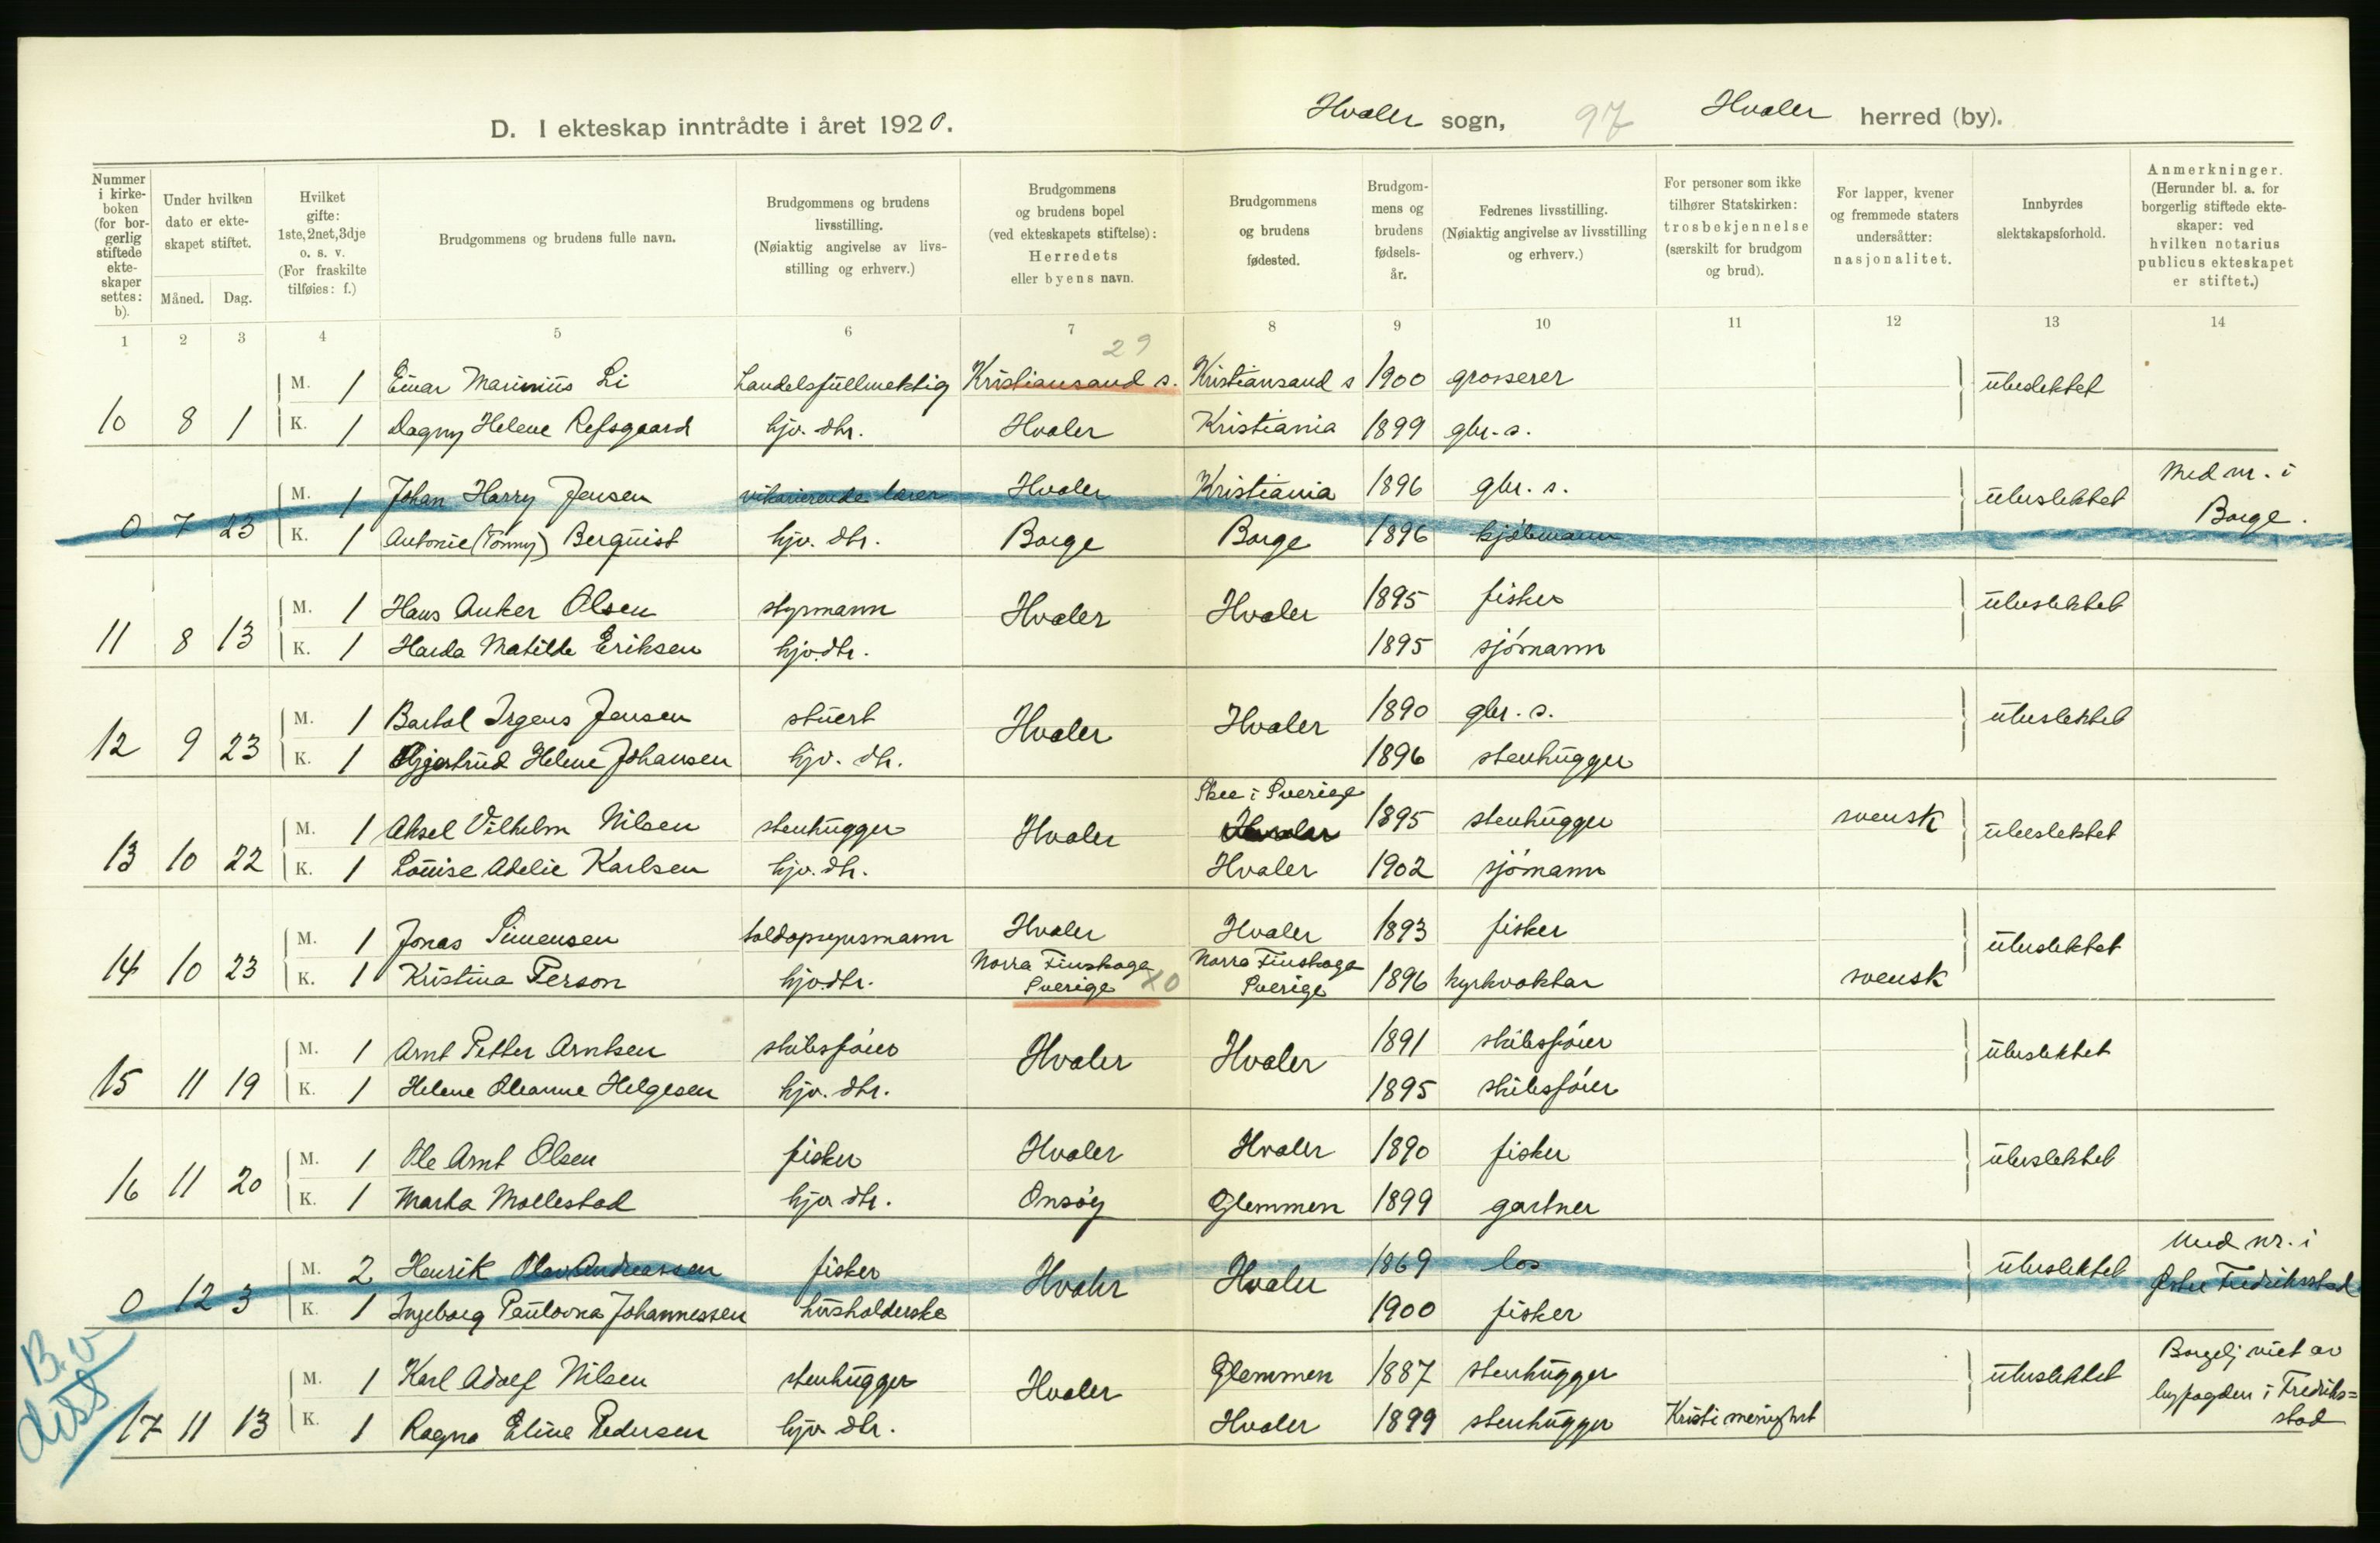 D. I ekteskap inntrådte i året 1920. Hvaler sogn, 97 Hvaler herred (by).
Nummer i kirke-boken (for bor-gerlig stiftede ekte-skaper settes: b).
Under hvilken dato er ekte-skapet stiftet.
Måned. Dag.
Hvilket gifte: 1ste, 2net, 3dje o. s. v. (For fraskilte tilføies: f.)
Brudgommens og brudens fulle navn.
Brudgommens og brudens livsstilling. (Nøiaktig angivelse av livs-stilling og erhverv.)
Brudgommens og brudens bopel (ved ekteskapets stiftelse): Herredets eller byens navn.
Brudgommens og brudens fødested.
Brudgom-mens og brudens fødsels-år.
Fedrenes livsstilling. (Nøiaktig angivelse av livsstilling og erhverv.)
For personer som ikke tilhører Statskirken: trosbekjennelse (særskilt for brudgom og brud).
For lapper, kvener og fremmede staters undersåtter: nasjonalitet.
Innbyrdes slektskapsforhold.
Anmerkninger. (Herunder bl. a. for borgerlig stiftede ekte-skaper: ved hvilken notarius publicus ekteskapet er stiftet.)
1 2 3 4 5 6 7 8 9 10 11 12 13 14
29
M. 1 Einar Marinius Li handelsfullmektig Kristiansand s. Kristiansand s 1900 grosserer ubeslektet
10 8 1 K. 1 Dagny Helene Refsgaard hjv. dtr. Hvaler Kristiania 1899 gbr. s.
M. 1 Johan Harry Jensen vikarierende lærer Hvaler Kristiania 1896 gbr. s. ubeslektet Med nr. i
0 7 23 K. 1 Antonie (Tonny) Berquist hjv. dtr. Borge Borge 1896 kjøbmann Borge.
M. 1 Hans Anker Olsen styrmann Hvaler Hvaler 1895 fisker ubeslektet
11 8 13 K. 1 Harda Matilde Eriksen hjv. dtr. 1895 sjómann
M. 1 Bartol Irgens Jensen stuert Hvaler Hvaler 1890 gbr. s. ubeslektet
12 9 23 K. 1 Gjertrud Helene Johansen hjv. dtr. 1896 stenhugger
Skee i Sverige
M. 1 Aksel Vilhelm Nilsen stenhugger Hvaler Hvaler 1895 stenhugger svensk ubeslektet
13 10 22 K. 1 Louise Adelie Karlsen hjv. dtr. Hvaler 1902 sjómann
M. 1 Jonas Simensen toldopsynsmann Hvaler Hvaler 1893 fisker ubeslektet
14 10 23 K. 1 Kristina Person hjv. dtr. Norra Finskoga Sverige Norra Finskoga Sverige 1896 kyrkvaktar svensk
M. 1 Arnt Petter Arntsen skibsfóier Hvaler Hvaler 1891 skibsfóier ubeslektet
15 11 19 K. 1 Helene Oleanne Helgesen hjv. dtr. 1895 skibsfóier
M. 1 Ole Arnt Olsen fisker Hvaler Hvaler 1890 fisker ubeslektet
16 11 20 K. 1 Marta Mollestad hjv. dtr. Onsóy Glemmen 1899 gartner
M. 2 Henrik Olav Andreassen fisker Hvaler Hvaler 1869 los ubeslektet Med nr. i
0 12 3 K. 1 Ingeborg Paulovna Johannessen husholderske 1900 fisker Østre Fredrikstad
B. v
diss
M. 1 Karl Adolf Nilsen stenhugger Hvaler Glemmen 1887 stenhugger ubeslektet Borgelj viet av
17 11 13 K. 1 Ragna Eline Pedersen hjv. dtr. Hvaler 1899 stenhugger Kristi menighet byfogden i Fredriks=
stad